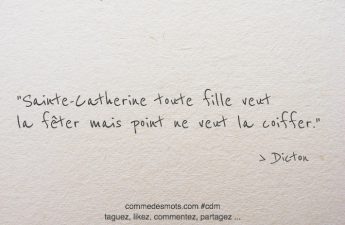 "Sainte-Catherine toute fille veut
la fêter mais point ne veut la coiffer."
> Dicton
commedesmots.com #cdm
taguez, likez, commentez, partagez ...